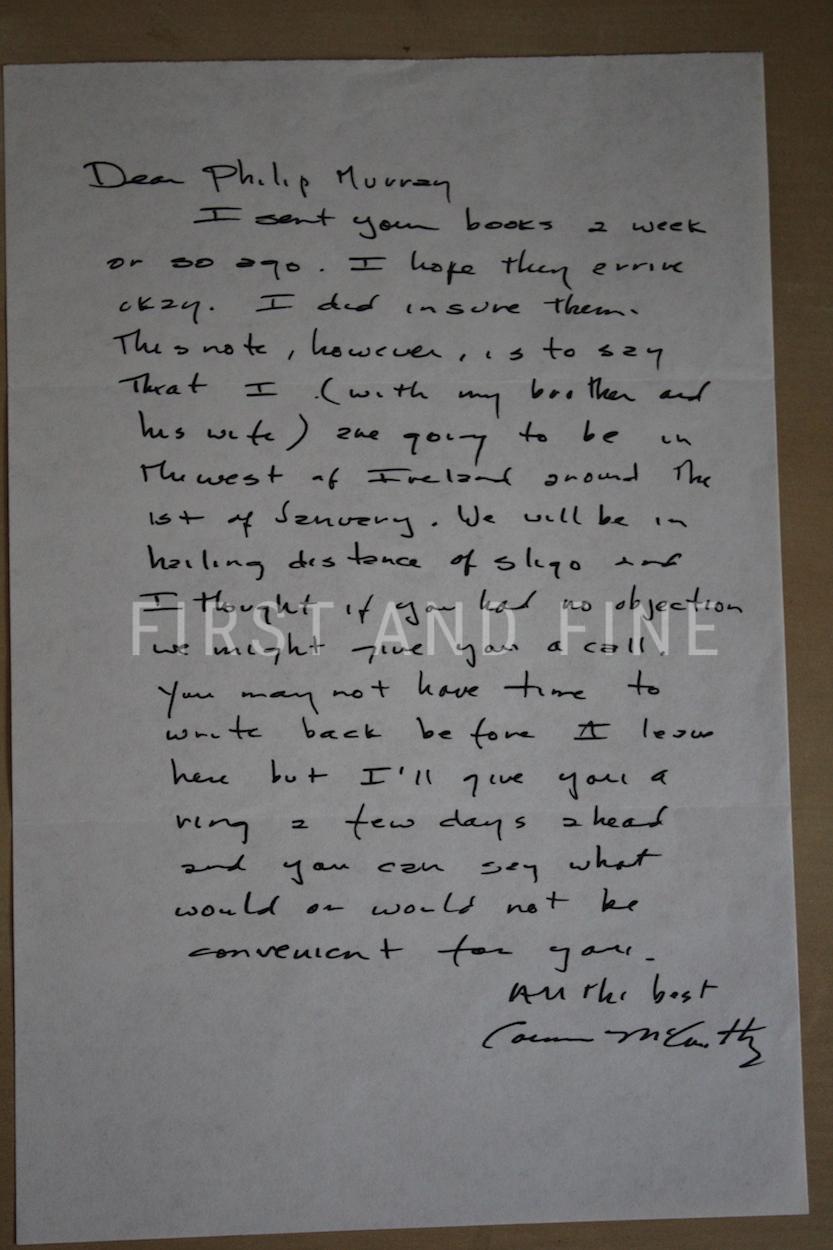 Dear Philip Murray
I sent your books a week
or so ago. I hope they arrive
okay. I did insure them.
This note, however, is to say
that I (with my brother and
his wife) are going to be in
the west of Ireland around the
1st of January. We will be in
hailing distance of Sligo and
I thought if you had no objection
we might give you a call.
You may not have time to
write back before I leave
here but I'll give you a
ring a few days ahead
and you can say what
would or would not be
convenient for you.
All the best
Cormac McCarthy
FIRST AND FINE